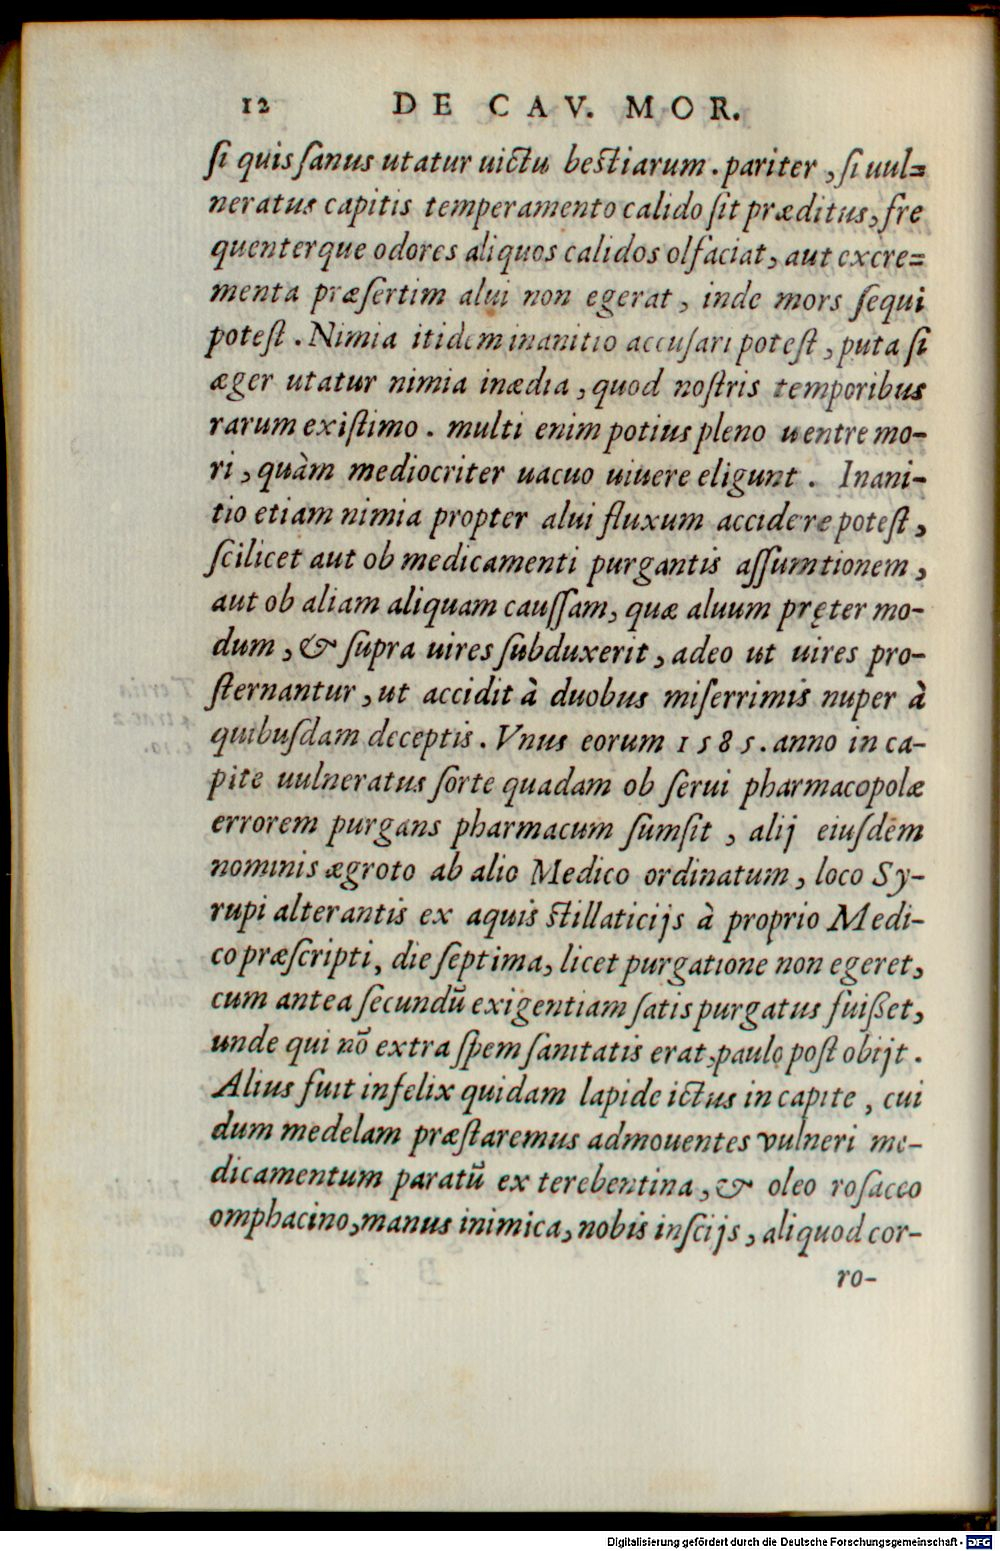 12 DE CAV. MOR.
ſi quis ſanus utatur uictu beſtiarum. pariter, ſi uul=
neratus capitis temperamento calido ſit præditus, fre
quenterque odores aliquos calidos olfaciat, aut excre=
menta præſertim alui non egerat, inde mors ſequi
poteſt. Nimia itidem inanitio accuſari poteſt, puta ſi
æger utatur nimia inædia, quod noſtris temporibus
rarum exiſtimo. multi enim potius pleno uentre mo-
ri, quàm mediocriter uacuo uiuere eligunt. Inani-
tio etiam nimia propter alui fluxum accidere poteſt,
ſcilicet aut ob medicamenti purgantis aſſumtionem,
aut ob aliam aliquam cauſſam, quæ aluum pręter mo-
dum, & ſupra uires ſubduxerit, adeo ut uires pro-
ſternantur, ut accidit à duobus miſerrimis nuper à
quibuſdam deceptis. Vnus eorum 1585. anno in ca-
pite uulneratus ſorte quadam ob ſerui pharmacopolæ
errorem purgans pharmacum ſumſit, alij eiuſdem
nominis ægroto ab alio Medico ordinatum, loco Sy-
rupi alterantis ex aquis ſtillaticijs à proprio Medi-
co præſcripti, die ſeptima, licet purgatione non egeret,
cum antea ſecundũ exigentiam ſatis purgatus fuiſſet,
unde qui nõ extra ſpem ſanitatis erat, paulo poſt obijt.
Alius fuit infelix quidam lapide ictus in capite, cui
dum medelam præſtaremus admouentes vulneri me-
dicamentum paratũ ex terebentina, & oleo roſaceo
omphacino, manus inimica, nobis inſcijs, aliquod cor-
ro-
Digitalisierung gefördert durch die Deutsche Forschungsgemeinschaft - DFG